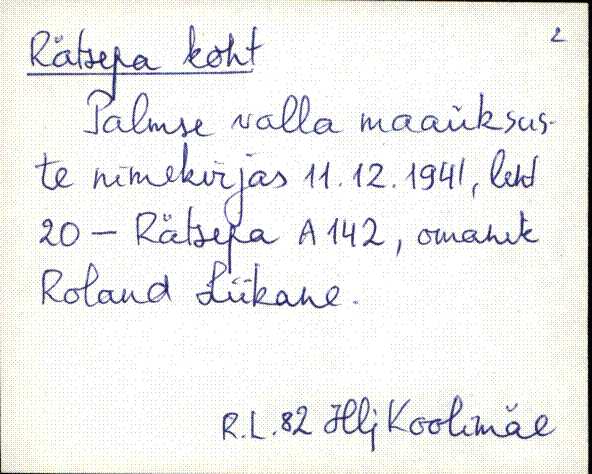 2
Rätsepa koht
Palmse valla maaüksus-
te nimekirjas 11.12.1941, leht
20 – Rätsepa A 142, omanik
Roland Liikane.
R.L. 82 Illj Koolimäe